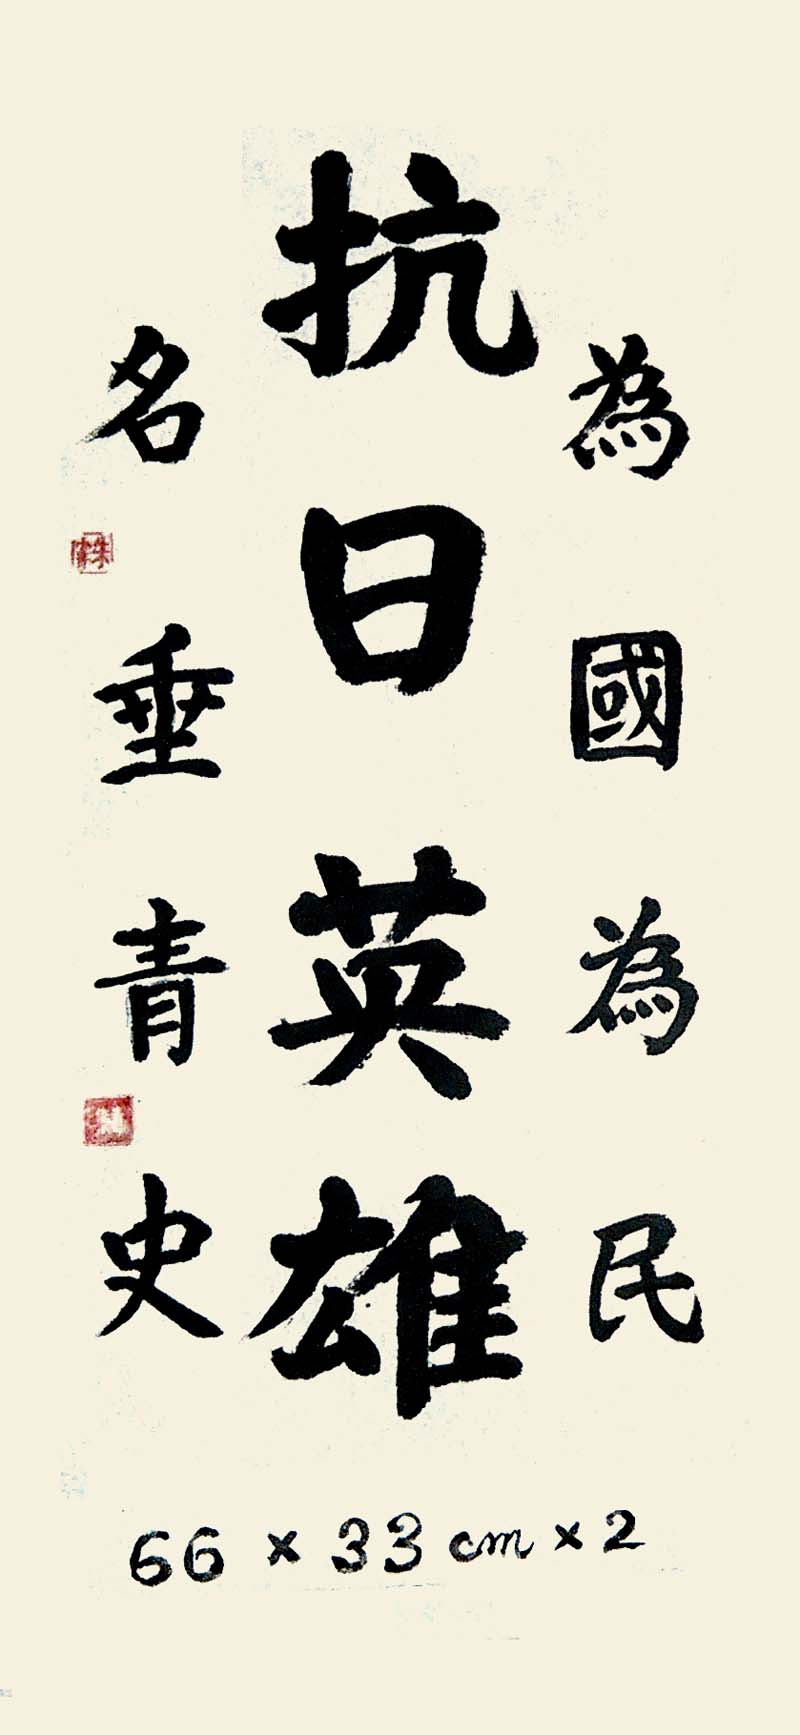 為國為民
抗日英雄
名垂青史
66 × 33 cm × 2